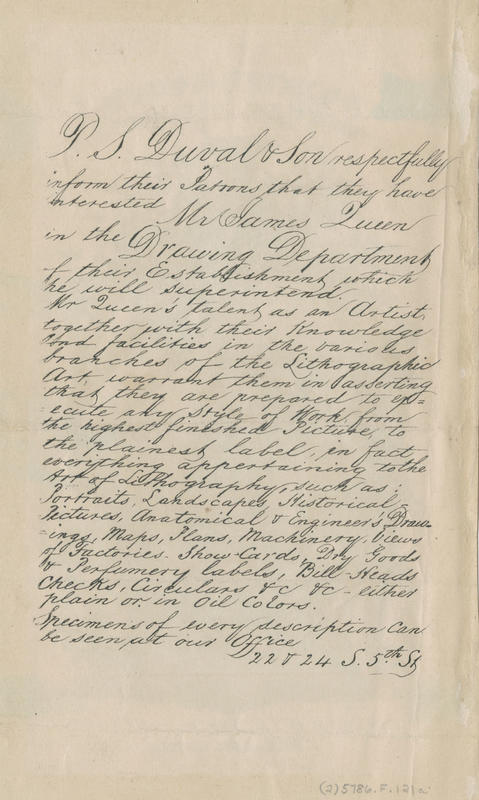 P. S. Duval & Son respectfully
inform their Patrons that they have
interested Mr James Queen
in the Drawing Department
of their Establishment, which
he will superintend.
Mr Queen's talent as an Artist,
together with their Knowledge
and facilities in the various
branches of the Lithographic
Art, warrant them in asserting
that they are prepared to ex=
=ecute any Style of Work, from
the highest finished Picture, to
the plainest label, in fact,
everything appertaining to the
Art of Lithography, such as:
Portraits, Landscapes, Historical
Pictures, Anatomical & Engineer's Draw-
-ings, Maps, Plans, Machinery, Views
of Factories. Show-Cards, Dry Goods
& Perfumery labels, Bill-Heads
Checks, Circulars &c &c - either
plain or in Oil Colors.
Specimens of every description can
be seen at our Office
22 & 24 S. 5th St
(2)5786.F.121a